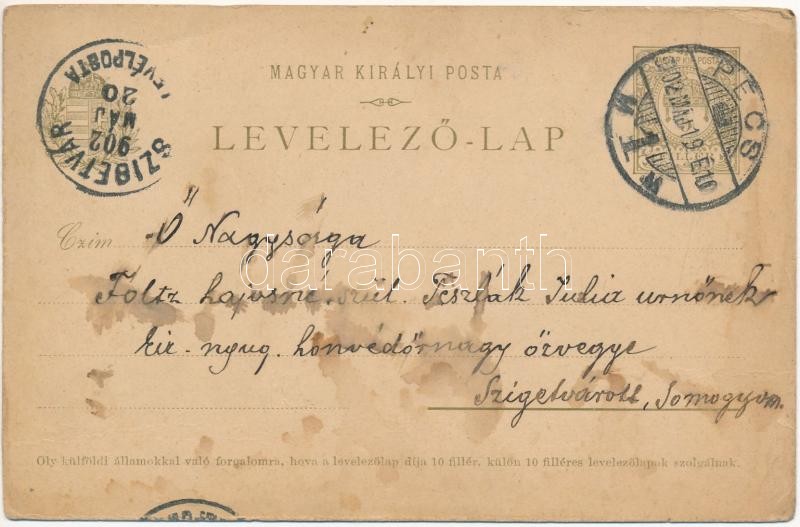 MAGYAR KIRÁLYI POSTA
LEVELEZŐ-LAP
SZIGETVÁR
902
MÁJ
20
LEVÉLPOSTA
MAGY. KIR. POSTA
PÉCS
902 MÁJ 19 E 10
1
Czim Ő Nagysága
Foltz Lajosné szül. Teszlák Julia urnőnek
kir. nyug. honvédőrnagy özvegye
Szigetvárott, Somogym.
darabanth
Oly külföldi államokkal való forgalomra, hova a levelezőlap díja 10 fillér, külön 10 filléres levelezőlapok szolgálnak.